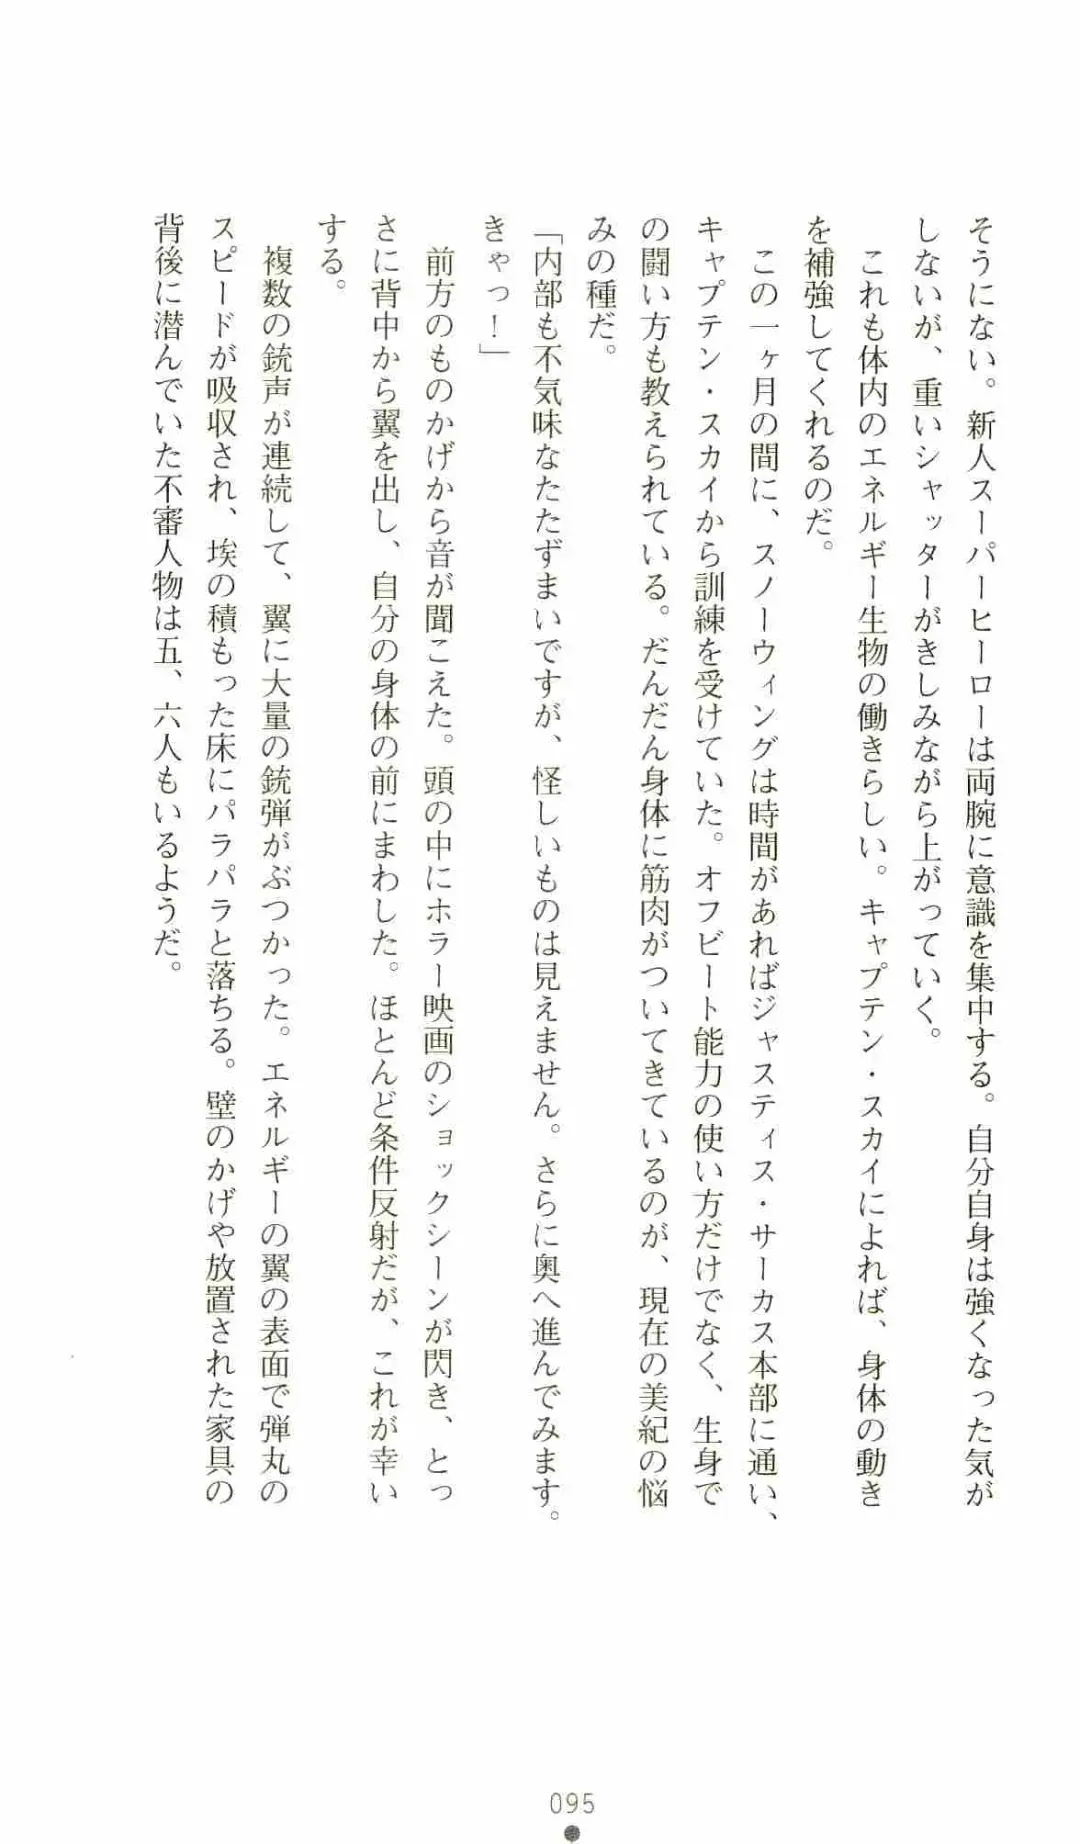 そうにない。新人スーパーヒーローは両腕に意識を集中する。自分自身は強くなった気が
しないが、重いシャッターがきしみながら上がっていく。
これも体内のエネルギー生物の働きらしい。キャプテン・スカイによれば、身体の動き
を補強してくれるのだ。
この一ヶ月の間に、スノーウィングは時間があればジャスティス・サーカス本部に通い、
キャプテン・スカイから訓練を受けていた。オフビート能力の使い方だけでなく、生身で
の闘い方も教えられている。だんだん身体に筋肉がついてきているのが、現在の美紀の悩
みの種だ。
「内部も不気味なたたずまいですが、怪しいものは見えません。さらに奥へ進んでみます。
きゃっ！」
前方のものかげから音が聞こえた。頭の中にホラー映画のショックシーンが閃き、とっ
さに背中から翼を出し、自分の身体の前にまわした。ほとんど条件反射だが、これが幸い
する。
複数の銃声が連続して、翼に大量の銃弾がぶつかった。エネルギーの翼の表面で弾丸の
スピードが吸収され、埃の積もった床にパラパラと落ちる。壁のかげや放置された家具の
背後に潜んでいた不審人物は五、六人もいるようだ。
095